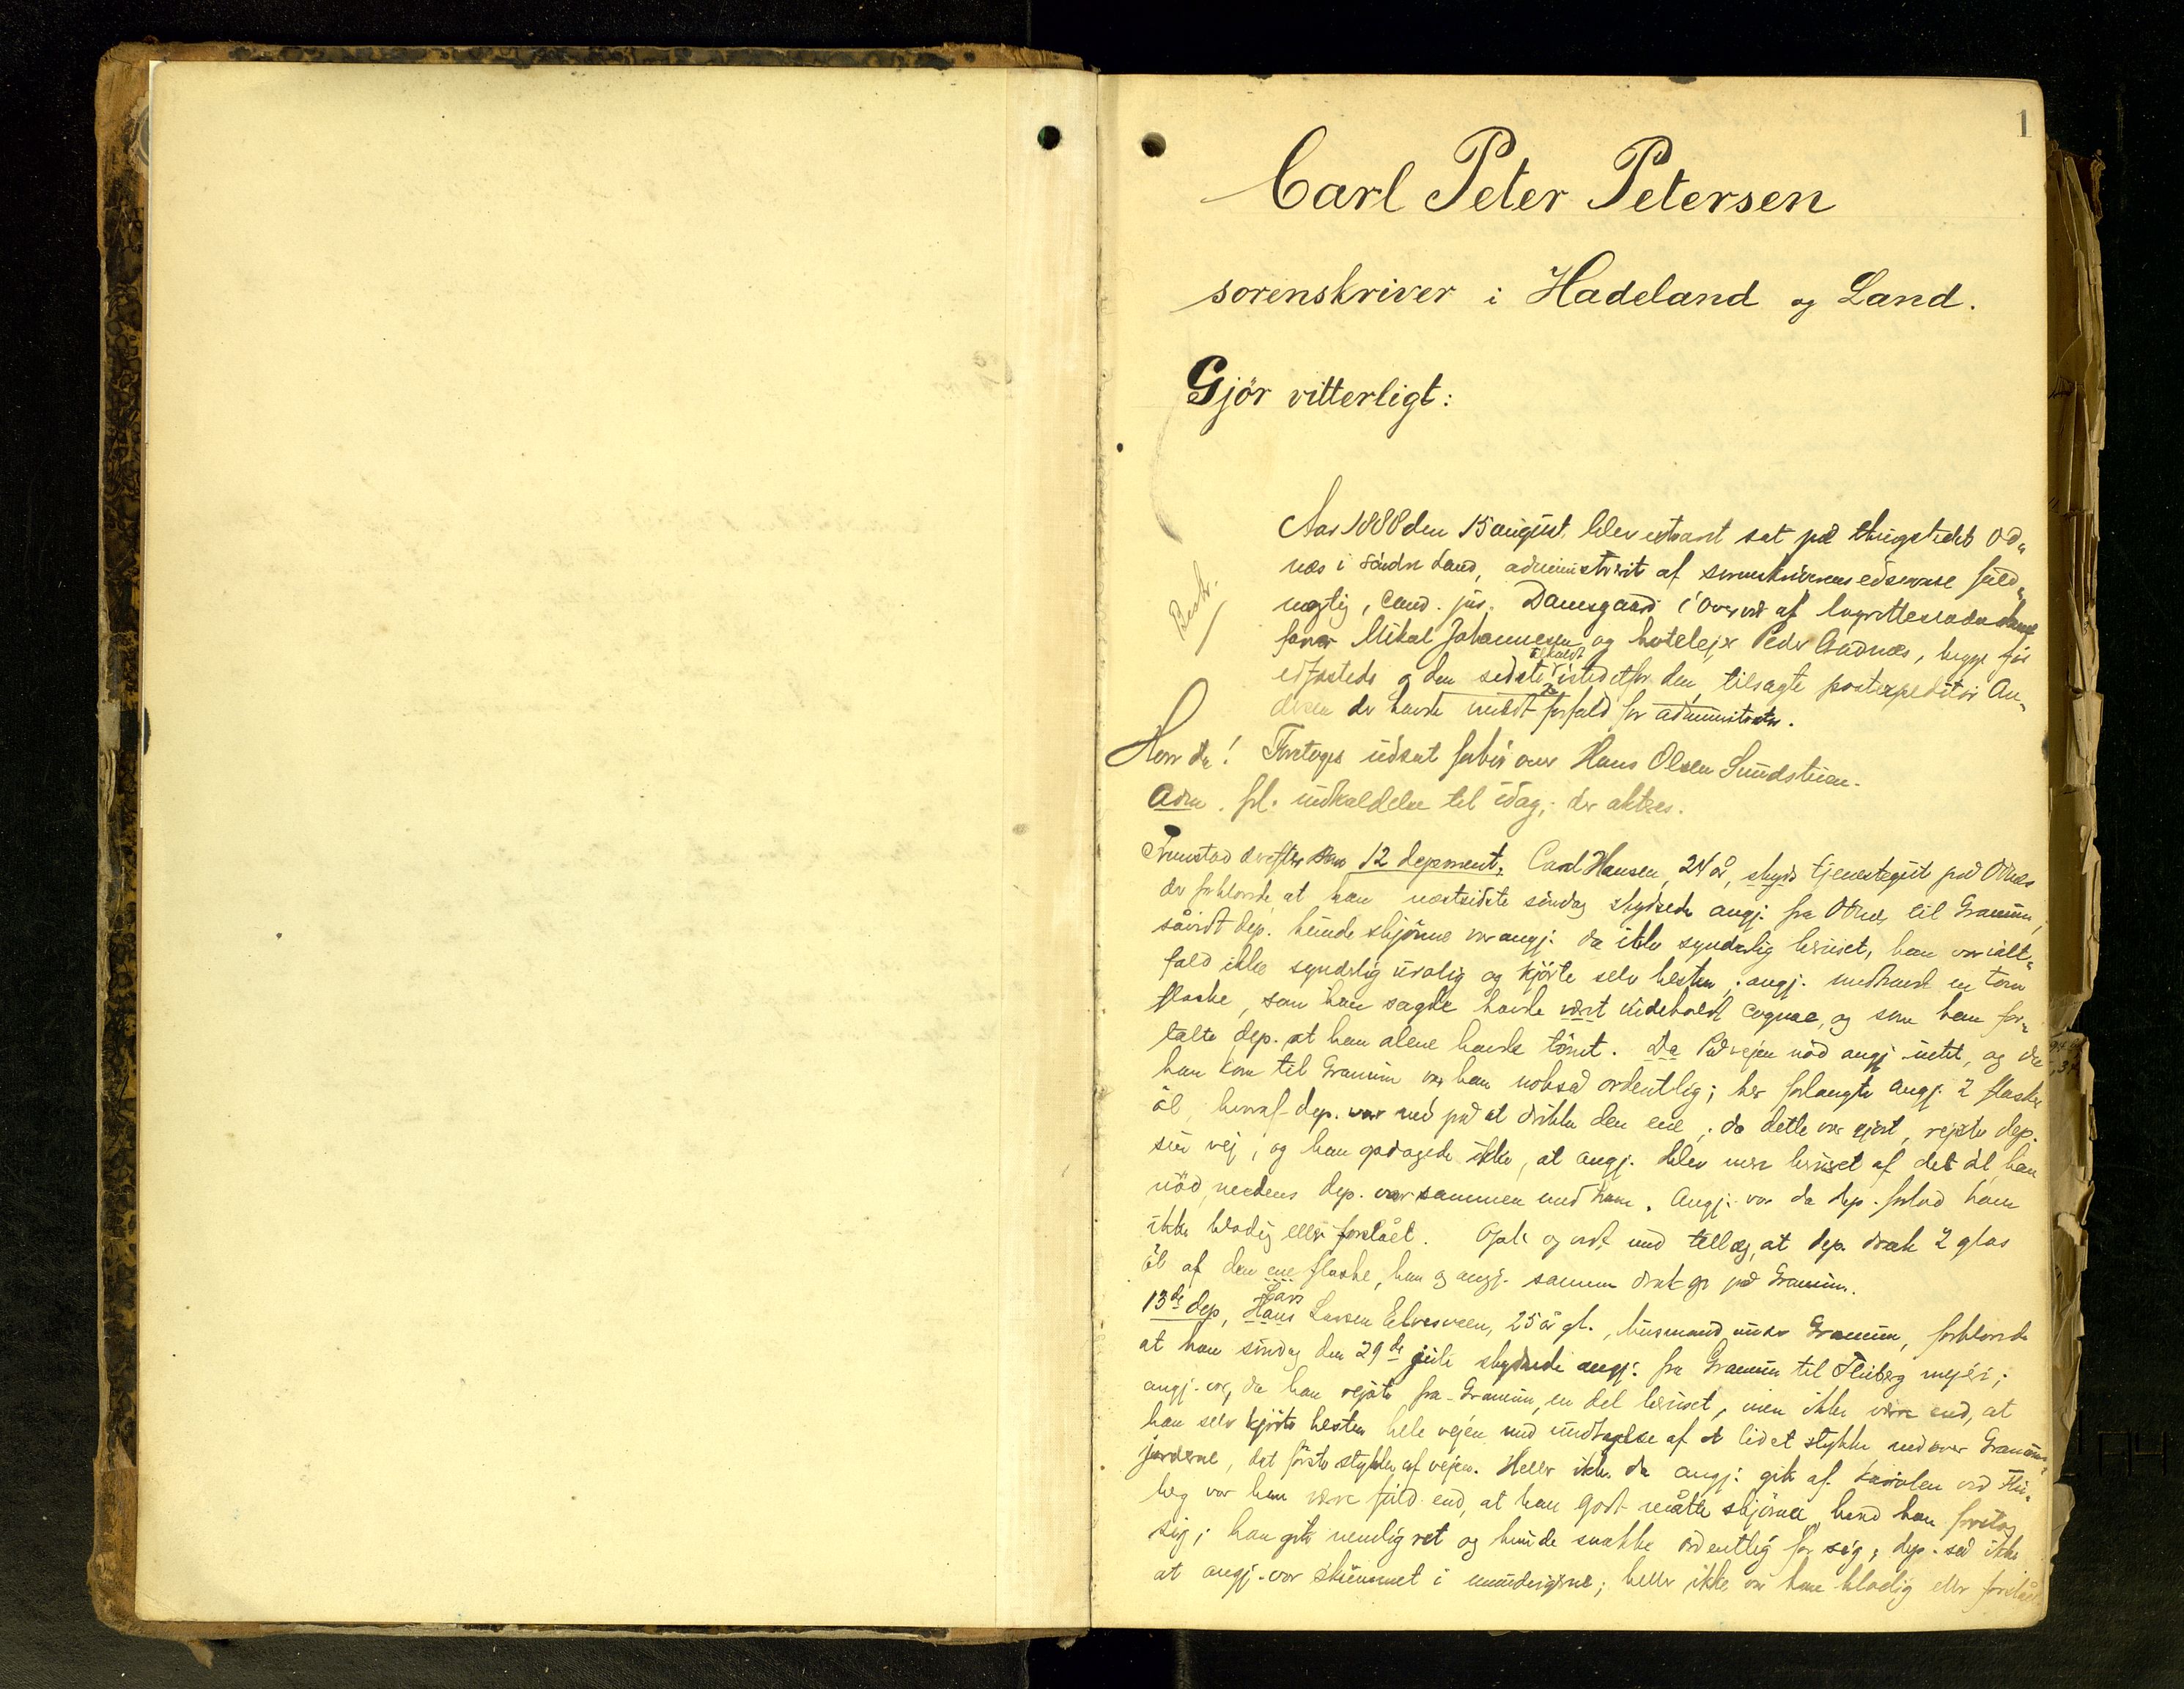 1
Carl Peter Petersen
sorenskriver i Hadeland og Land.
Gjör vitterligt:
Aar 1888 den 15 august, blev extraret sat på thingstedet Od„
næs i söndre Land, administrert af sorenskriverens edsvorne fuld„
mægtig, cand. jur. Damsgaard i overvær af lagrettes
Mikal Johannesen og hotelejer Peder Odnæs, begge för
edfæstede og den sidste tilkaldt istedetfor den tilsagte postexpeditör An„
dersen der havde meldt forfald for administrator.
Bestr.
Hvorda! Foretoges udsat forhör over Hans Olsen Sundstuen.
Adm. frl. indkaldelse til idag; der aktes.
Fremstod derefter som 12 deponent, Carl Hansen, 24 år, skyds tjenestegut på Odnæs
der forklarede, at han næstsidste söndag skydsede angj. fra Odnæs til Gramum,
såvidt dep. kunde skjönne var angj. da ikke synderlig beruset, han var ialt„
fald ikke synderlig urolig og kjörte selv hesten; angj. medhavde en tom
flaske, som han sagde havde vært indeholdt cognac, og som han for„
talte dep. at han alene havde tömt. Da På vejen nöd angj. intet, og da
han kom til Gramum var han nokså ordentlig; her forlangte angj. 2 flasker
öl, hvoraf dep. var med på at drikke den ene; da dette var gjort, rejste dep.
sin vej, og han opdagede ikke, at angj. blev mere beruset af det öl, han
nöd, medens dep. var sammen med ham. Angj. var da dep. forlod ham
ikke blodig eller forslået. Opl. og vedt. med tillæg, at dep. drak 2 glas
öl af den ene flaske, han og angj. sammen drak på Gramum.
13de dep, Hans Lars Larsen Elvesveen, 25 år gl., husmand under Gramum, forklarede
at han söndag den 29de juli skydsede angj. fra Gramum til Fluberg mejeri;
angj. var, da han rejste fra Gramum, en del beruset, men ikke være end, at
han selv kjörte hesten hele vejen med undtagelse af et lidet stykke nedover Gramums„
jorderne, det förste stykke af vejen. Heller ikke da angj. gik af kariolen ved Flu„
berg var han være fuld end, at han godt måtte skjönne, hvad han foretog
sig; han gik nemlig ret og kunde snakke ordentlig for sig; dep. så ikke
at angj. var skummet i mundvigene; heller ikke var han blodig eller forslået